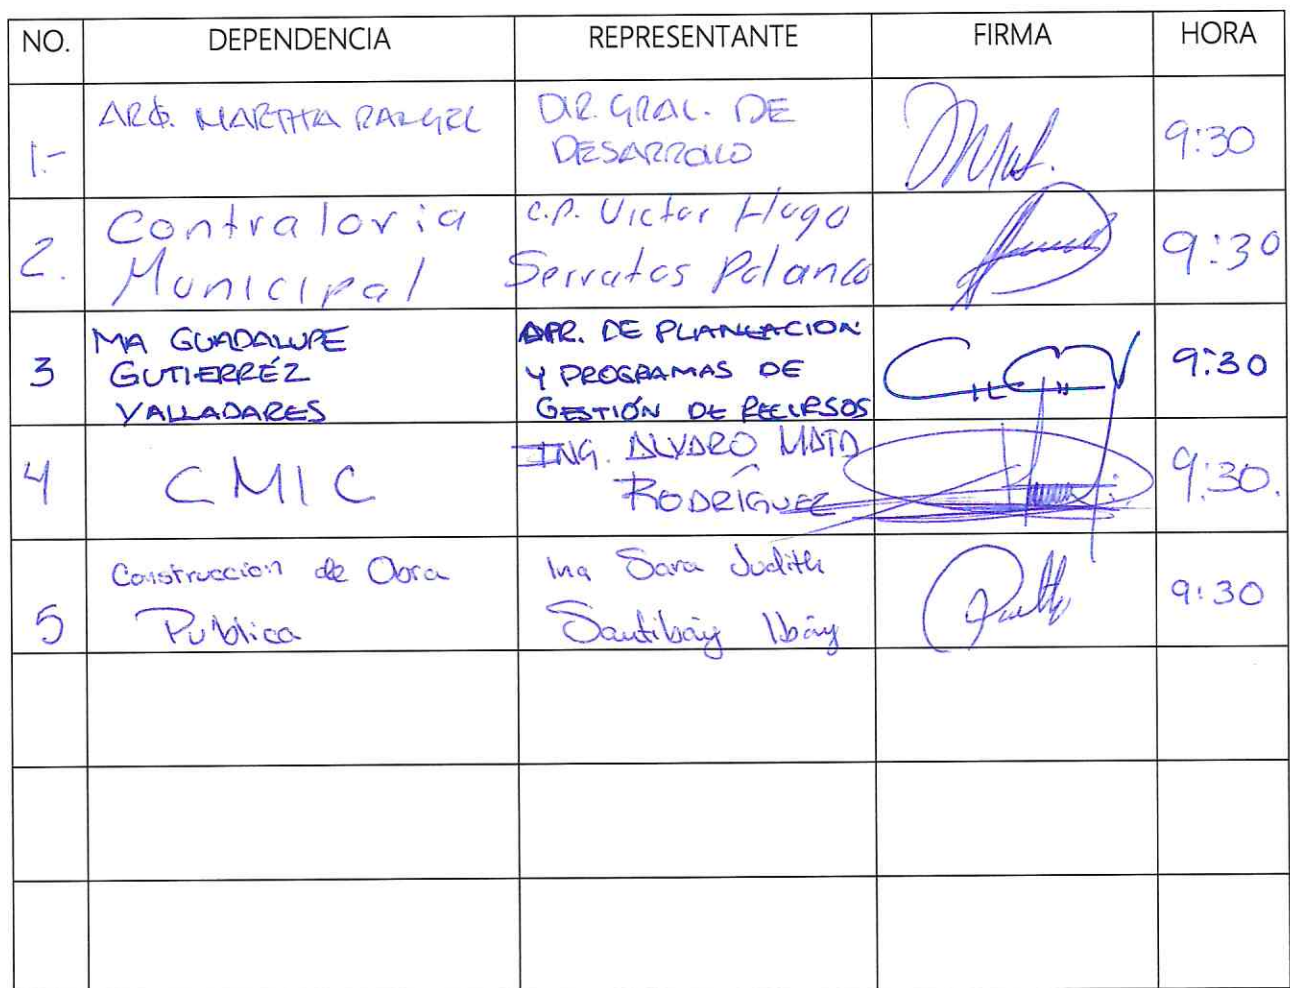 NO. DEPENDENCIA REPRESENTANTE FIRMA HORA
1.- ARQ. MARTHA RANGEL DIR. GRAL. DE DESARROLLO 9:30
2. Contraloria Municipal C.P. Victor Hugo Serratos Polanco 9:30
3 MA GUADALUPE GUTIERRÉZ VALLADARES DE PLANEACION Y PROGRAMAS DE GESTIÓN DE RECURSOS 9:30
4 CMIC ING. ALVARO MATA RODRÍGUEZ 9:30.
5 Construccion de Obra Publica Ing Sara Judith 9:30